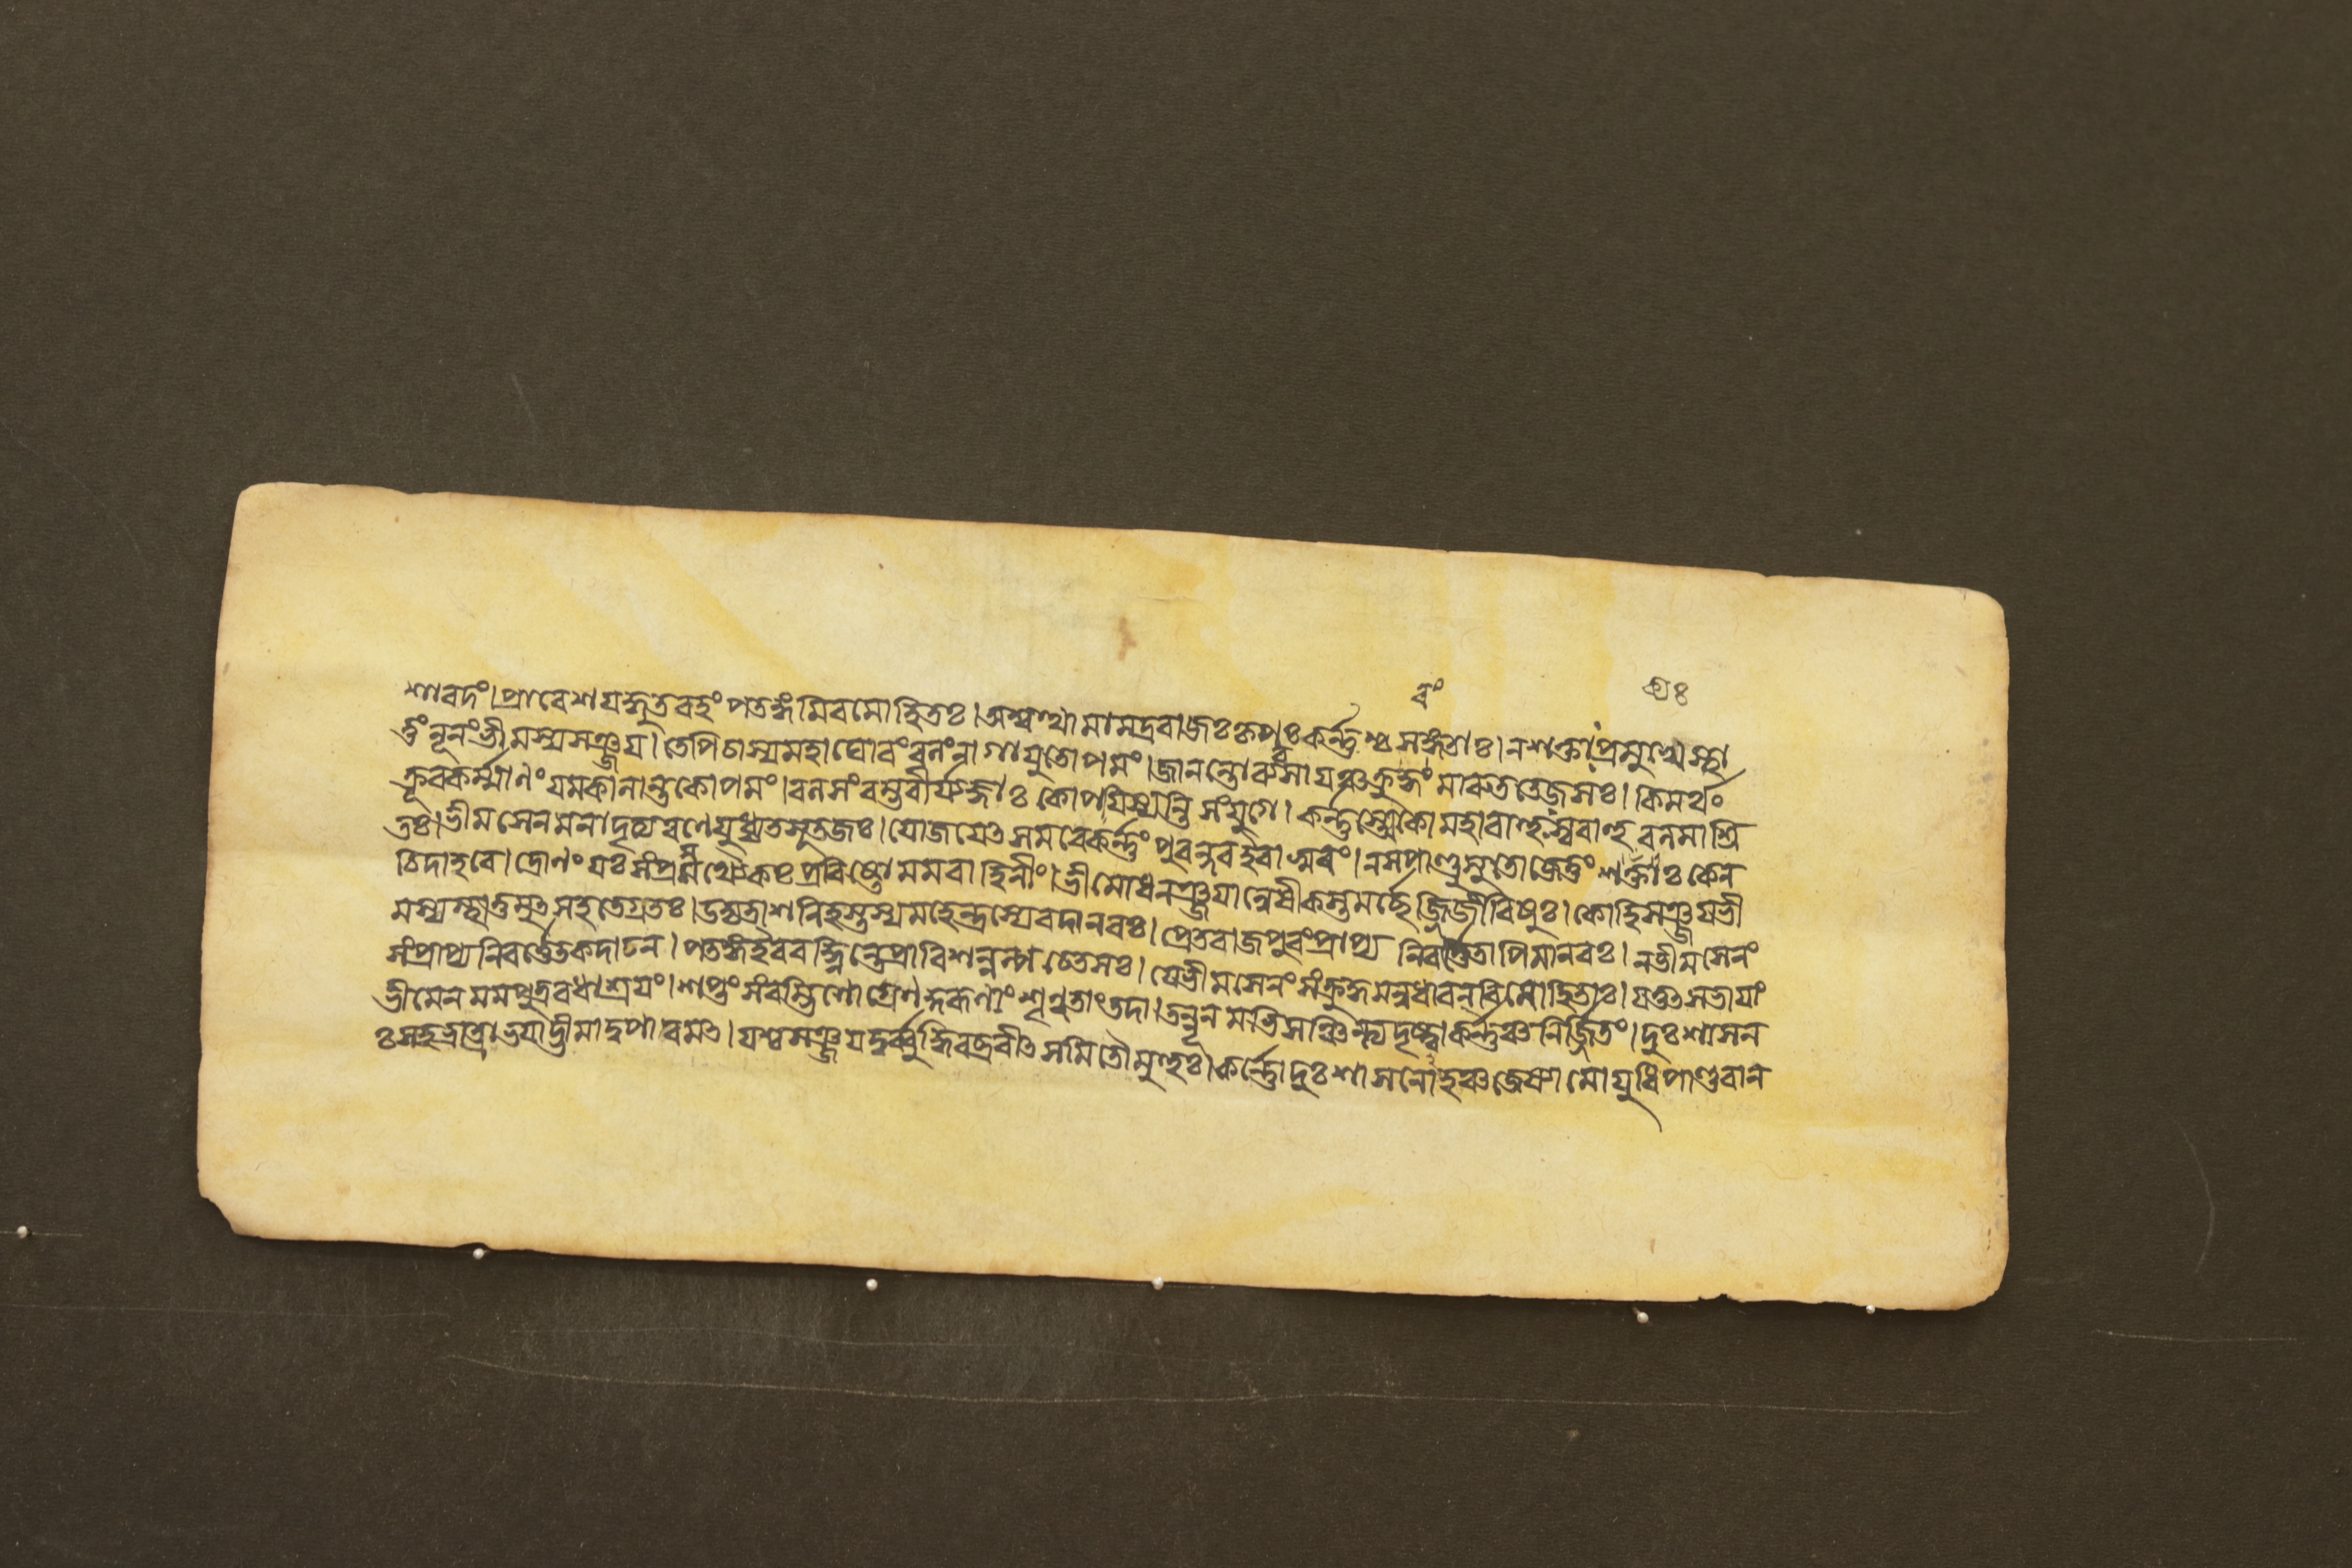 বং ণ্রঃ
শাবদং।প্রাবেশযদ্ধুতবহং পতঙ্গমিবমোহিতঃ।অশ্বত্থামামদ্রবাজঃকৃপঃকর্ন্নশ্চসঙ্গতাঃ।নশক্তাঃপ্রমুখেস্থা
তুং নূনংভীমস্যসঞ্জয়।তেপিচাস্যমহাঘোবংবলংনাগাযুতোপমং।জানন্তোব্যবসাযঞ্চক্রূবং মাৰুততেজসঃ।কিমর্থং
ক্রূবকর্ম্মাণং যমকালান্তকোপমং।বলসংবম্ভবীর্য্যজ্ঞাঃ কোপযিষ্যন্তি সংযুগে।কর্ন্নস্ত্বেকোমহাবাহুঃস্ববাহু বলমাশ্রি
তঃ।ভীমসেনমনাদৃত্যবণেযুধ্যতসূতজঃ।যোজযেৎ সমবেকর্ন্নং পুবন্দবইবাসুবং।নসপাণ্ডুসুতোজেতুং শক্যঃ কেন
চিদাহবে।দ্রোণং যঃ সংপ্রমথ্যৈকঃ প্রবিষ্টো মমবাহিনীং।ভীমোধনঞ্জযান্বেষীকস্তমর্চ্ছেজ্জিজীবিষুঃ।কোহিসঞ্জযভী
মস্যস্থাতুমুৎসহতেগ্রতঃ।উদ্যতাশনিহস্তস্যমহেন্দ্রস্যেবদানবঃ।প্রেতবাজপুবংপ্রাপ্য নিবর্ত্তেতাপিমানবঃ।নভীমসেনং
সংপ্রাপ্যনিবর্ত্তেতকদাচন।পতঙ্গাইববহ্নিন্তেপ্রাবিশন্নল্পচেতসঃ।যেভীমসেনং সংক্রুদ্ধমন্বধাবন্বিমোহিতাঃ।যত্তৎসভাযাং
ভীমেন মমপুত্রবধাশ্রযং।শপ্তং সংবম্ভিণোগ্রেণ কুৰূণাং শৃণ্বতাং তদা।তন্নূনমভিসঞ্চিন্ত্যদৃষ্ট্বাকর্ন্নঞ্চনির্জ্জিতং।দুঃশাসন
ঃসহভ্রাত্রাভযাদ্ভীমাদুপাবমৎ।যশ্চসঞ্জযদুর্ব্বুদ্ধিবব্রবীৎ সমিতৌমুহুঃ।কর্ন্নোদুঃশাসনোহঞ্চজেষ্যামোযুধিপাণ্ডবান